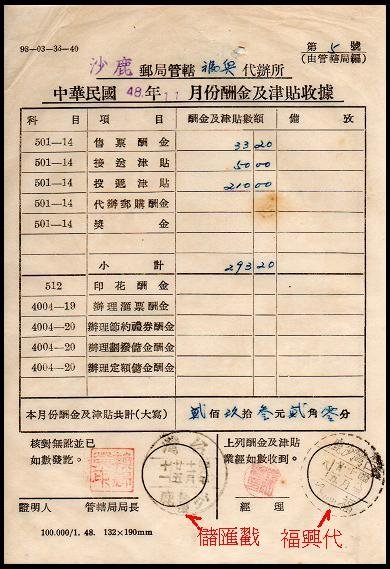 98—03—33—40
第 5 號
(由管轄局編)
沙鹿 郵局管轄 福興 代辦所
中華民國 48 年 11 月份酬金及津貼收據
科 目 項 目 酬金及津貼數額 備 攷
501—14 售票酬金 33 20
501—14 接送津貼 50 00
501—14 投遞津貼 210 00
501—14 代辦郵購酬金
501—14 獎 金
小 計 293 20
512 印花酬金
4004—19 辦理滙票酬金
4004—20 辦理節約禮券酬金
4004—20 辦理劃撥儲金酬金
4004—20 辦理定額儲金酬金
本月份酬金及津貼共計(大寫) 貳佰玖拾叁元貳角零分
核對無訛並已
如數發訖。
上列酬金及津貼
業經如數收到。
證明人 管轄局局長
經 理
儲匯戳
福興代
100.000/1. 48. 132×190mm